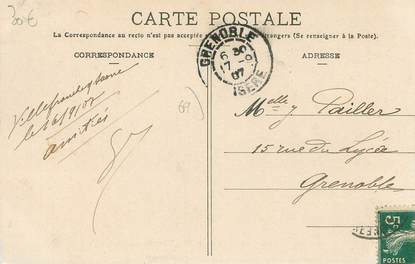 30€
CARTE POSTALE
La Correspondance au recto n'est pas acceptée étrangers (Se renseigner à la Poste).
CORRESPONDANCE
ADRESSE
GRENOBLE
6 30
17 -9
07
ISERE
Villefranche s/ Saone
le 16/9/07
amitiés
69
Melle J Pailler
15 rue du Lycée
Grenoble
5c
POSTES